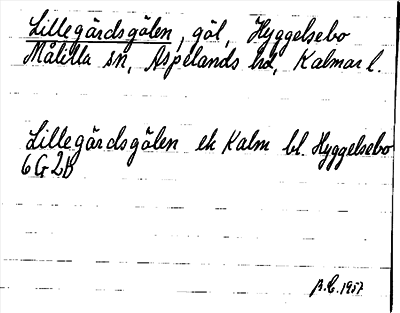 Lillegärdsgölen, göl, Hyggelsebo
Målilla sn, Aspelands hd, Kalmar l.
Lillegärdsgölen ek Kalm bl. Hyggelsebo
6G2b
B.E. 1957